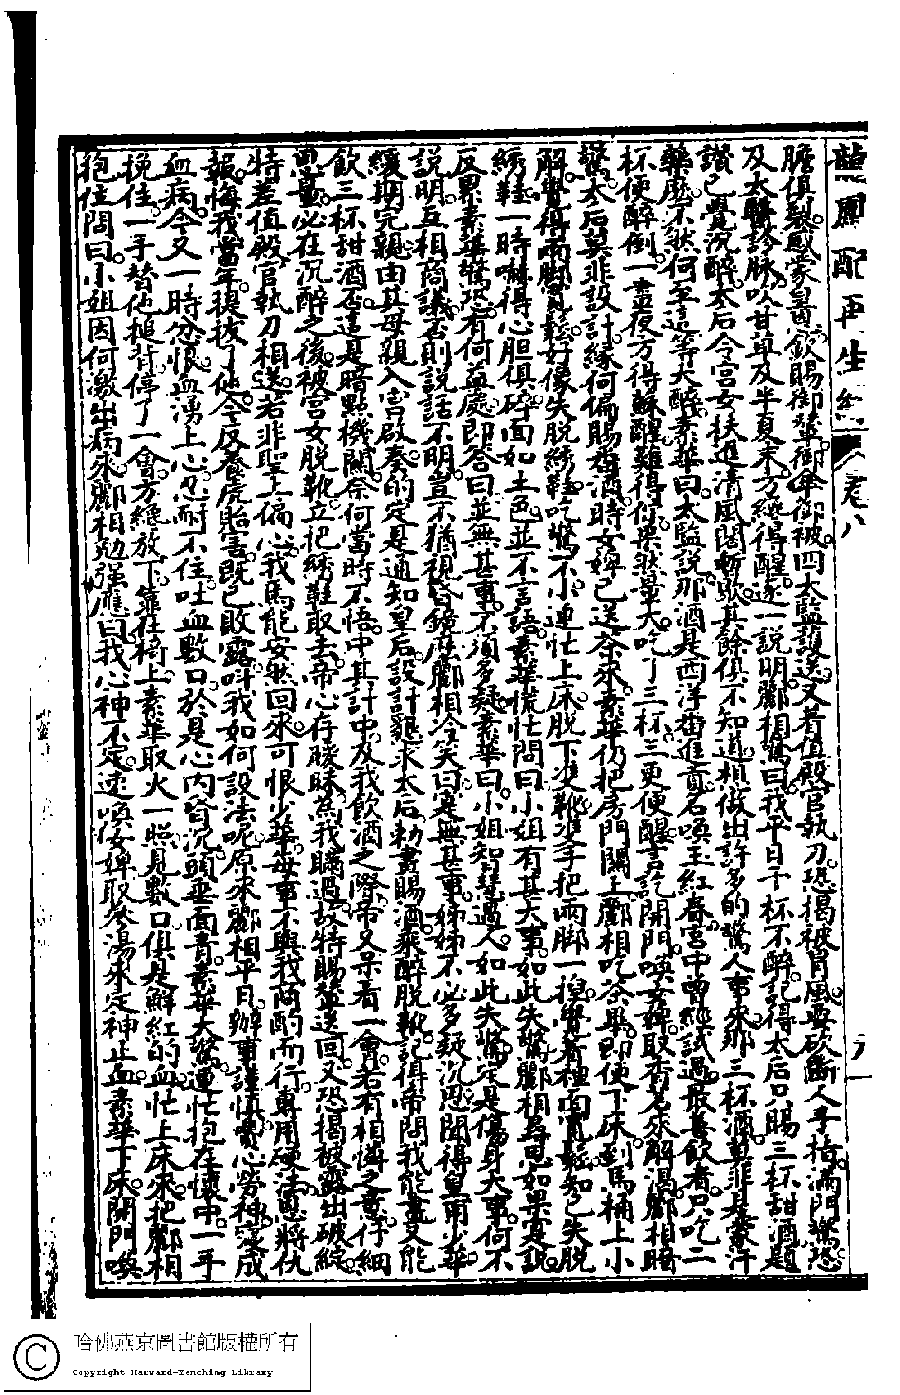 龍鳳配再生緣 卷八
膽俱裂感蒙皇恩欽賜御輦御傘御被四太監護送又着值殿官執刀恐揭被冒風要砍斷人手指滿門驚恐
及太醫診脉吹甘草及半夏末方纔得醒遂一說明酈相驚曰我平日千杯不醉記得太后只賜三杯甜酒題
讃已覺沉醉太后令宮女扶進清風閣暫歇其餘俱不知道相做出許多的驚人事來那三杯酒莫非是蒙汗
藥麼不然何至這等大醉素華曰太監說那酒是西洋番進貢名喚玉紅春宮中曾經試過最善飲者只吃二
杯便醉倒一晝夜方得蘇醒難得你果然量大吃了三杯三更便醒言訖開門喚女婢取香茗來解渴酈相暗
驚太后莫非設計緣何偏賜香酒時女婢已送茶來素華仍把房門關上酈相吃茶畢即便下床到馬桶上小
解覺得兩脚寬鬆好像失脫綉鞋吃驚不小連忙上床脫下進靴進手把兩脚一揑覺着裡面寬鬆知已失脫
綉鞋一時嚇得心胆俱碎面如土色並不言語素華慌忙問曰小姐有甚大事如此失驚酈相尋思如果實說
反累素華驚恐有何益處即答曰並無甚事不須多疑素華曰小姐智慧過人如此失驚定是傷身大事何不
說明互相商議否則說話不明豈不猶視昏鏡麽酈相冷笑曰實無甚事姊姊不必多疑沉思聞得皇甫少華
纔期完親由其母親入宮啟奏的定是通知皇后設計懇求太后勅畫賜酒乘醉脫靴記俱帝問我能畫又能
飲三杯甜酒否這是暗點機關奈何當時不悟中其計中及我飲酒之際帝又呆看一會若有相憐之意仔細
思量必在沉醉之後被宮女脫靴立把綉鞋取去帝心存曖昧為我瞞過故特賜輦送回又恐揭被露出破綻
特差值殿官執刀相送若非聖上偏心我焉能安然回來可恨少華每事不與我商酌而行專用硬法恩將仇
報悔我當年提拔了他今反養虎貽害既已敗露叫我如何設法呢原來酈相平日辦事謹慎費心勞神定成
血病今又一時忿恨血湧上心忍耐不住吐血數口於是心內昏沉頭垂面青素華大驚連忙抱在懷中一手
挽住一手替他搥背停了一會方纔放下靠在椅上素華取火一照見數口俱是鮮紅的血忙上床來把酈相
抱住問曰小姐因何激出病來酈相勉强應曰我心神不定速喚女婢取參湯來定神止血素華下床開門喚
哈佛燕京圖書館版權所有
Copyright Harvard-Yenching Library